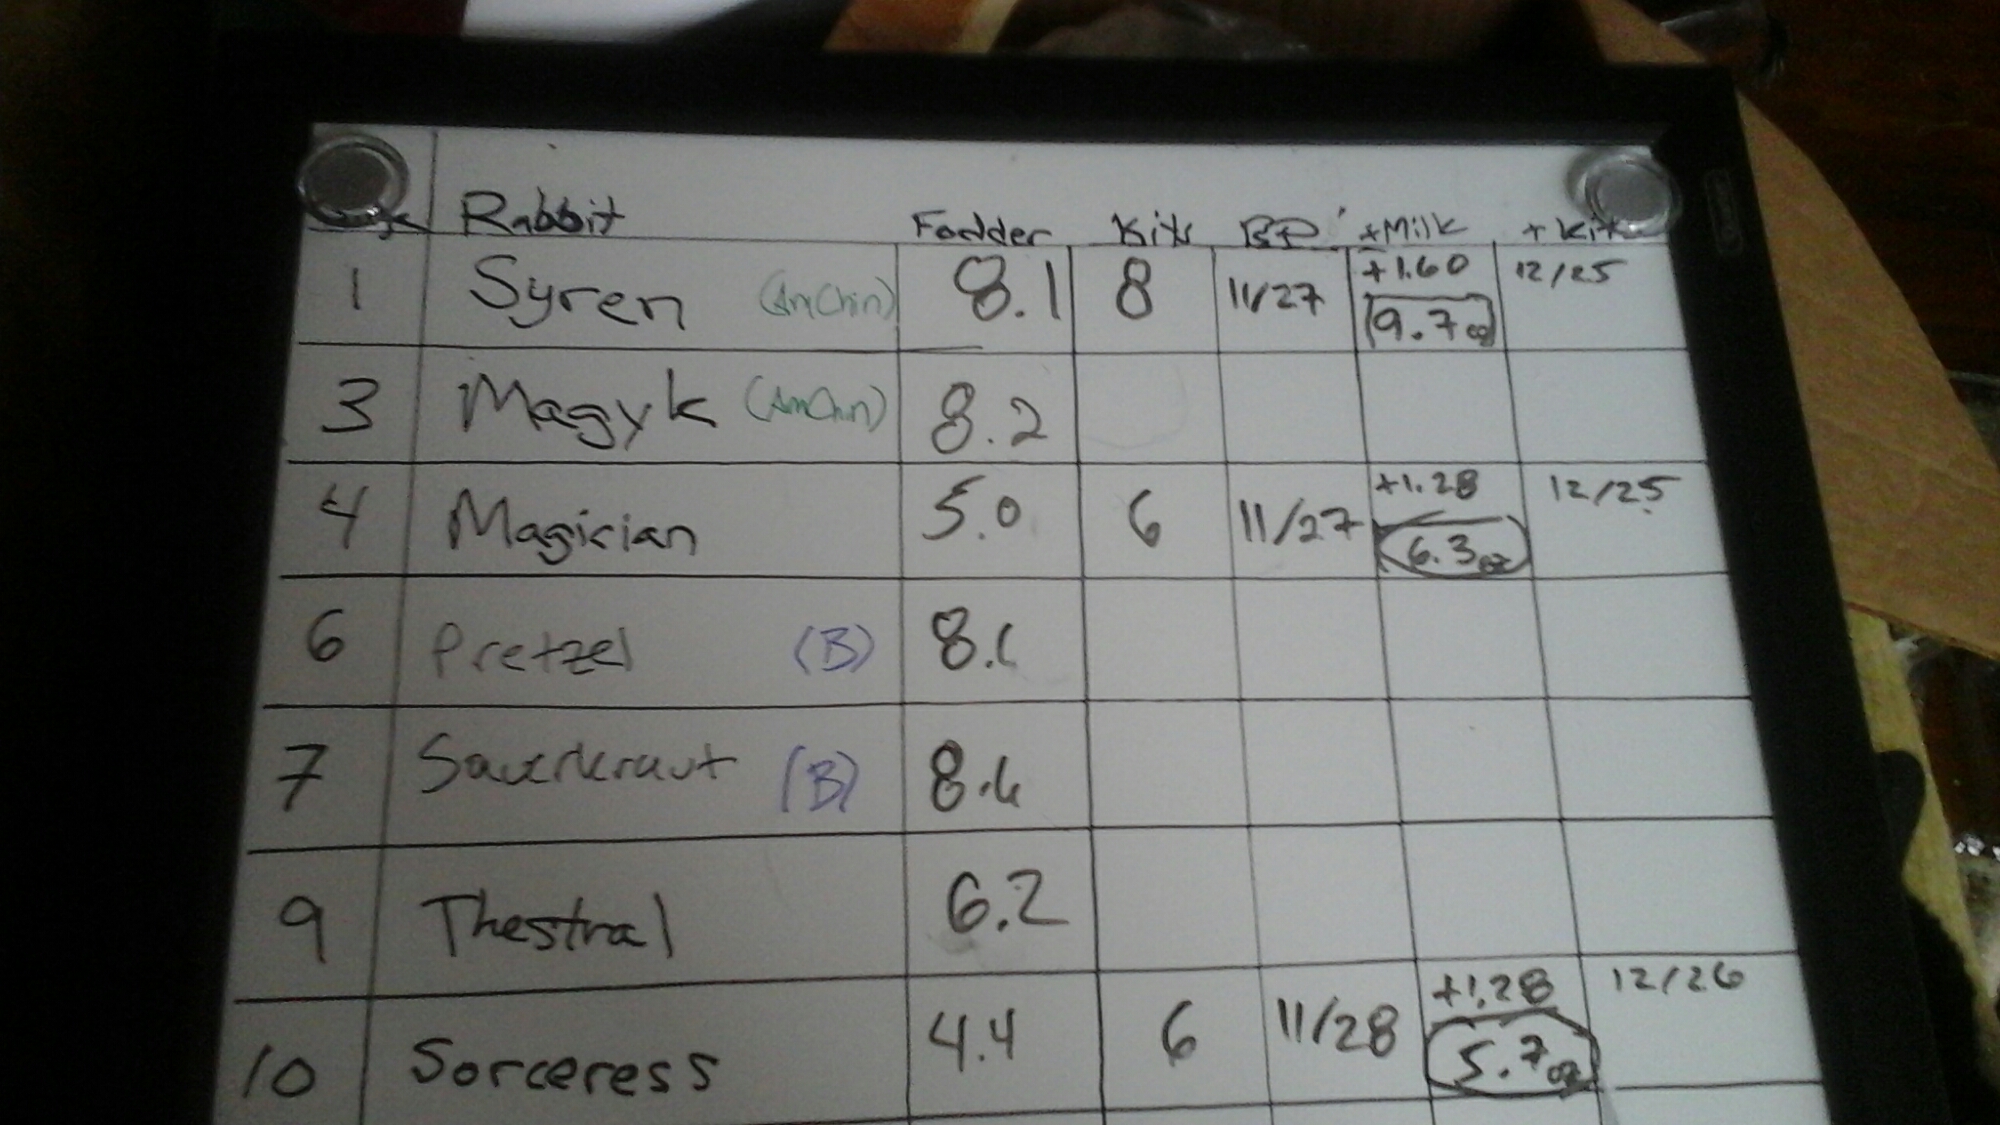 Rabbit Fodder Kits BD +Milk + Kit
1 Syren (AmChin) 8.1 8 11/27 +1.60 12/25
9.7oz
3 Magyk (AmChin) 8.2
4 Magician 5.0 6 11/27 +1.28 12/25
6.3oz
6 Pretzel (B)
7 Sauerkraut (B)
9 Thestral 6.2
10 Sorceress 4.4 6 11/28 +1.28 12/26
5.7oz